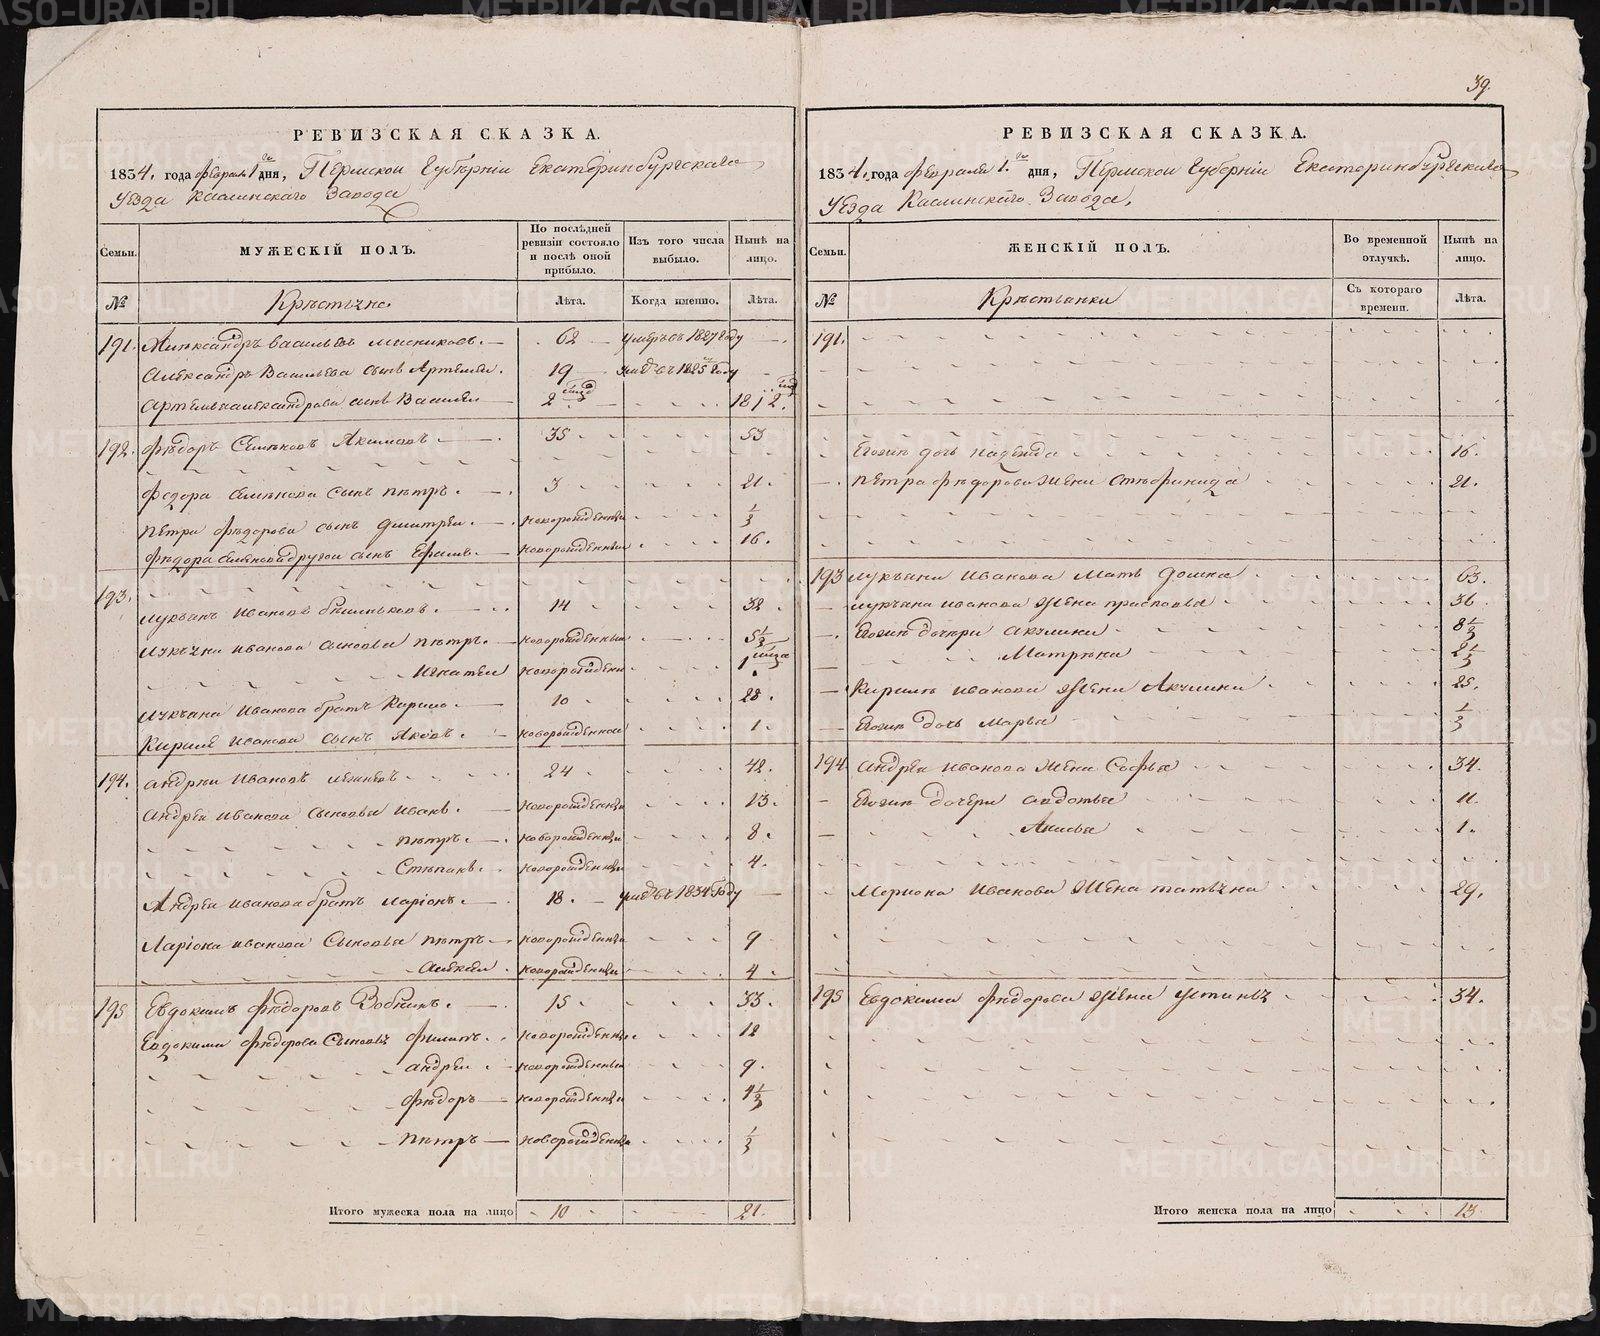 39.
РЕВИЗСКАЯ СКАЗКА.
1834. года февраля 1го дня, Пермской Губерніи Екатеринбургскаго
Уезда Каслинскаго Завода
Семьи.
МУЖЕСКІЙ ПОЛЪ.
По послѣдней ревизіи состояло и послѣ оной прибыло.
Изъ того числа выбыло.
Нынѣ на лицо.
№
Лѣта.
Когда именно.
Лѣта.
191. Александръ Васильевъ 62 умеръ въ 1827 году
Александръ Васильева сынъ Артемеи. 19 въ 1825 году
Артемья Александрова сынъ Василеи 2 18 1/2.
192. Федоръ Семеновъ Акимовъ 35 53
Федора Семенова сынъ Петръ. 3 21.
Петра Федорова сынъ Дмитреи. новорожденныи 1/3
Федора Семенова другои сынъ Ефимъ. новорожденныи 16.
193.
Лукьянъ Ивановъ 14 32
Лукьяна Иванова сыновья Петръ. новорожденныи 5 1/2
Игнатеи новорожденыи 1
Лукьяна Иванова братъ Кирило. 10 28
Кирила Иванова сынъ Яковъ. новорожденнои 1.
194. Андреи Ивановъ 24 42.
Андрея Иванова сыновья Иванъ. новорожденныи 13.
Петръ. новорожденныи 8.
Степанъ. новорожденныи 4.
Андрея Иванова братъ Ларіонъ. 18. въ 1834 году
Ларіона Иванова сыновья Петръ новорожденныи 9
Алексеи новорожденныи 4.
195 Евдокимъ Федоровъ 15 33.
Евдокима Федорова сыновья Филипъ. новорожденныи 12
Андреи новорожденныи 9.
Федоръ новорожденныи 4 1/2
Петръ новорожденныи 1/3
Итого мужеска пола на лицо 10 21.
РЕВИЗСКАЯ СКАЗКА.
1834. года февраля 1.го дня, Пермской Губерніи Екатеринбургскаго
Уезда Каслинскаго Завода,
Семьи.
ЖЕНСКІЙ ПОЛЪ.
Во временной отлучкѣ.
Нынѣ на лицо.
№
Крестьянки
Съ котораго времени.
Лѣта.
191.
Евоная дочь Надежда 16.
Петра Федорова жена Стефанида 21.
193 Лукьяна Иванова мать Домна 63.
Лукьяна Иванова жена Прасковья 36
Евоныя дочери Акулина 8 1/2
Матрена 2 1/2
Кирила Иванова жена Акулина 25.
Евоная дочь Марья 1/3
194 Андрея Иванова жена Софья 34.
Евоныя дочери Авдотья 11.
Анисья 1.
Лариона Иванова жена Татьяна 29.
195 Евдокима Федорова жена Устинья 34.
Итого женска пола на лицо 13.
METRIKI.GASO-URAL.RU